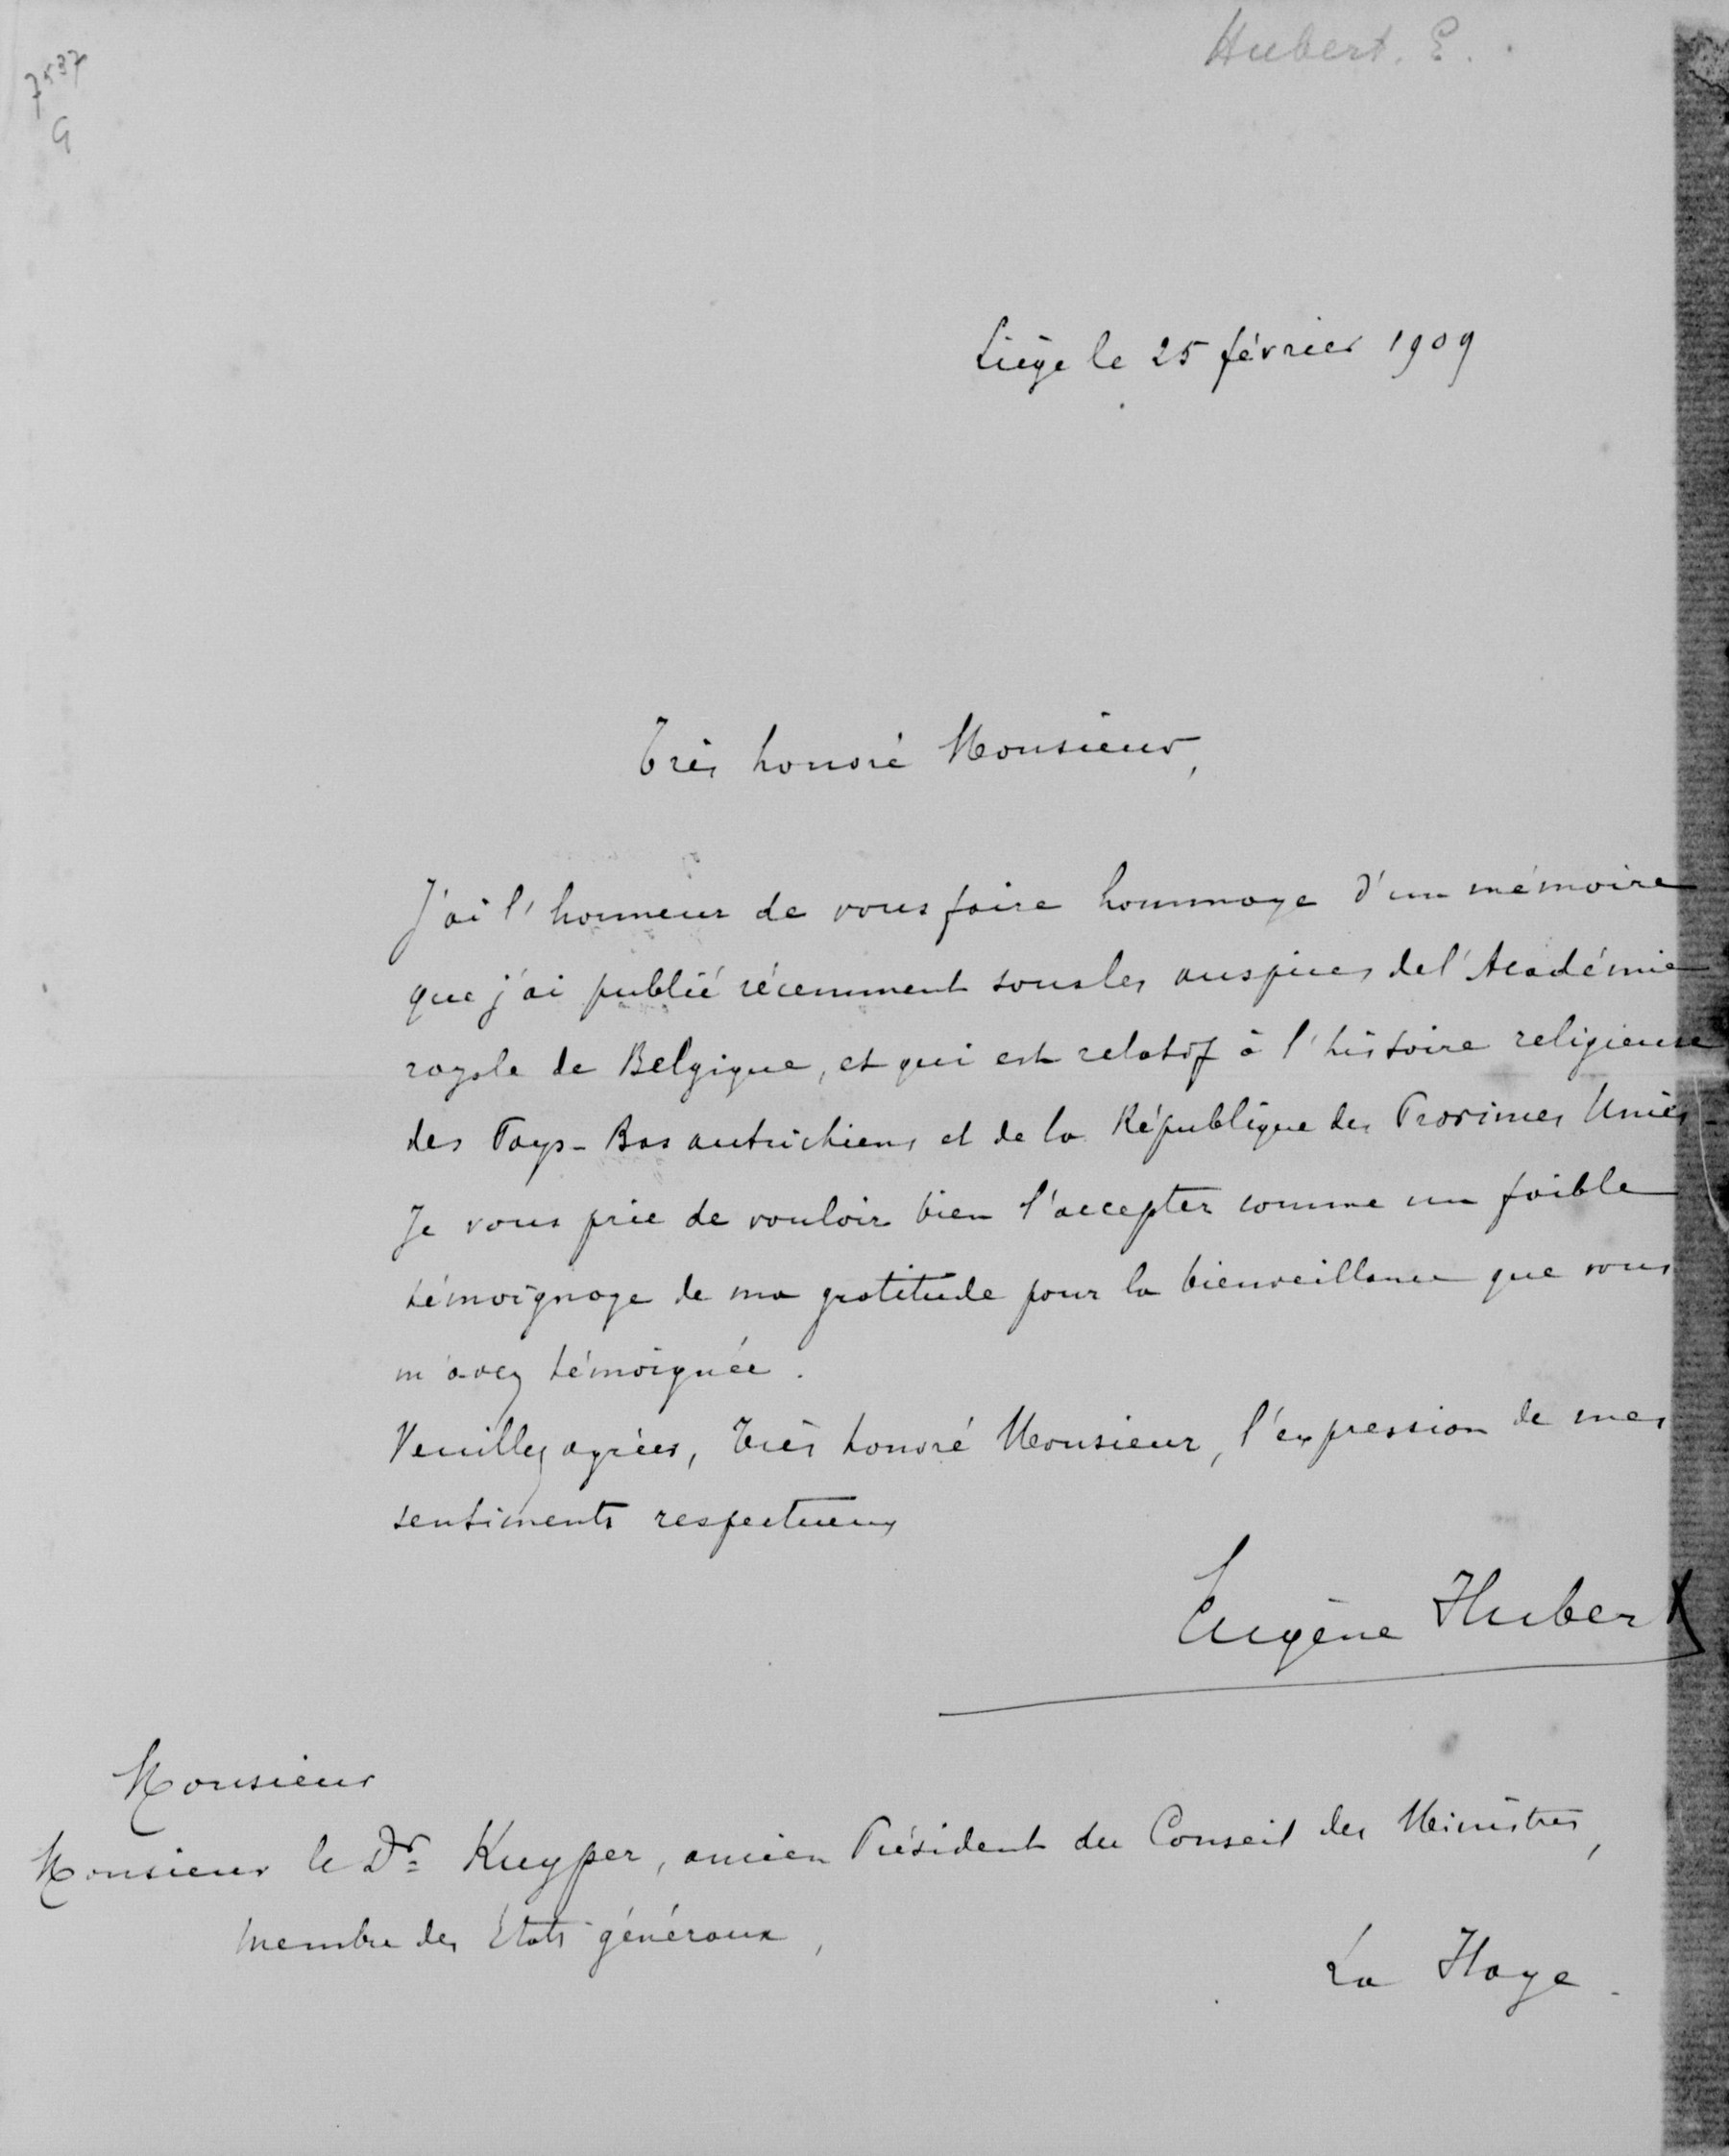 Hubert. E.
7537
G
Liège le 25 février 1909
Très honoré Monsieur,
J'ai l'honneur de vous faire hommage d'un mémoire
que j'ai publié récemment sous les auspices de l'Académie
royale de Belgique, et qui est relatif à l'histoire religieuse
des Pays-Bas autrichiens et de la République des Provinces Unies
Je vous prie de vouloir bien l'accepter comme un faible
témoignage de ma gratitude pour la bienveillance que vous
m'avez témoignée.
Veuillez agréer, Très honoré Monsieur, l'expression de mes
sentiments respectueux
Eugène Hubert
Monsieur
Monsieur le Dr Kuyper, ancien Président du Conseil des Ministres,
membre des Etats généraux,
La Haye.